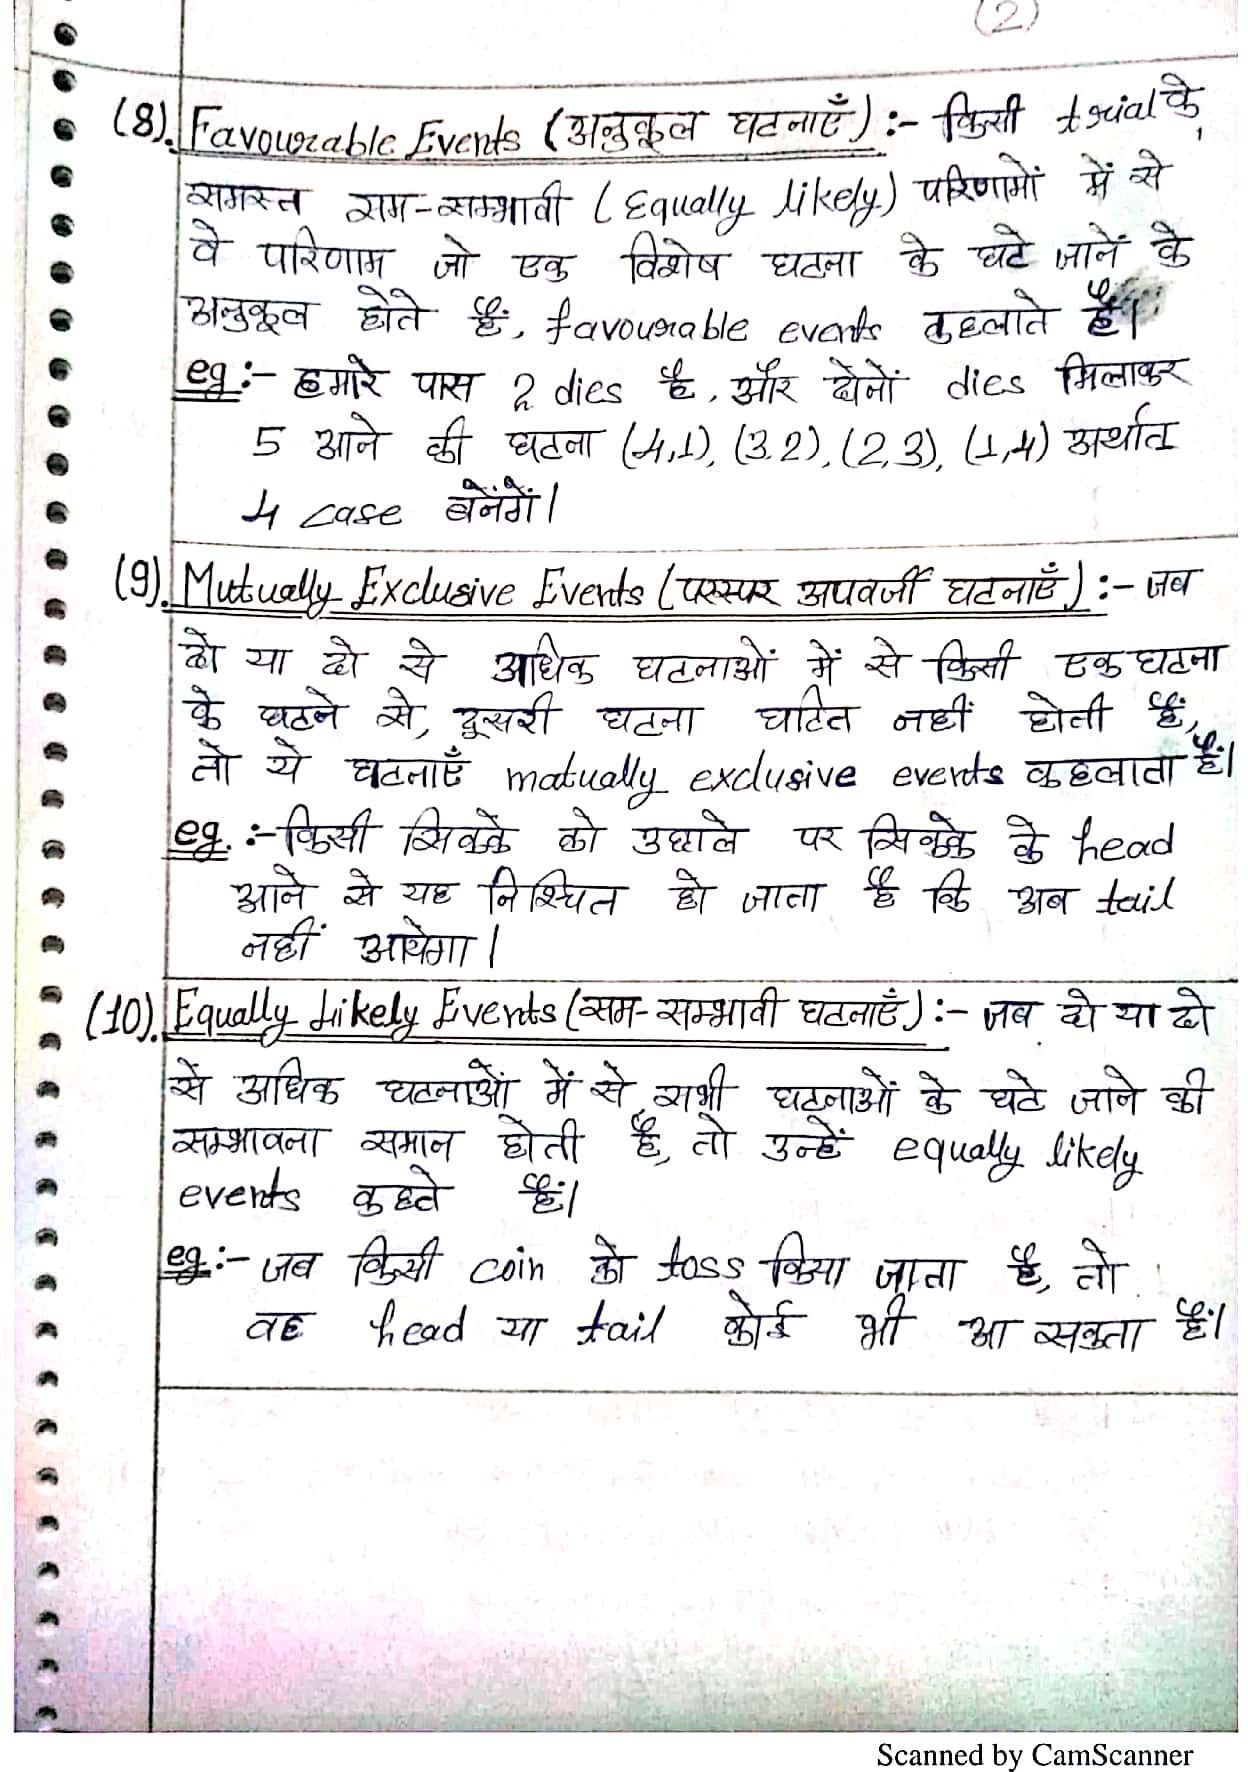 (2)
(8). Favourable Events (अनुकूल घटनाएँ) :- किसी trial के,
समस्त सम-सम्भावी (Equally likely) परिणामों में से
वे परिणाम जो एक विशेष घटना के घटे जानें के
अनुकूल होते हैं, favourable events कहलाते हैं।
eg :- हमारे पास 2 dies है, और दोनों dies मिलाकर
5 आने की घटना (4,1), (3,2), (2,3), (1,4) अर्थात
4 case बनेंगें।
(9). Mutually Exclusive Events (परस्पर अपवर्जी घटनाएँ) :- जब
दो या दो से अधिक घटनाओं में से किसी एक घटना
के घटने से, दूसरी घटना घटित नहीं होती हैं,
तो ये घटनाएँ matually exclusive events कहलाता हैं।
eg. :- किसी सिक्के को उछाले पर सिक्के के head
आने से यह निश्चित हो जाता है कि अब tail
नहीं आयेगा।
(10). Equally Likely Events (सम-सम्भावी घटनाएँ) :- जब दो या दो
से अधिक घटनाओं में से सभी घटनाओं के घटे जाने की
सम्भावना समान होती है, तो उन्हें equally likely
events कहते हैं।
eg :- जब किसी coin को toss किया जाता है, तो
वह head या tail कोई भी आ सकता हैं।
Scanned by CamScanner